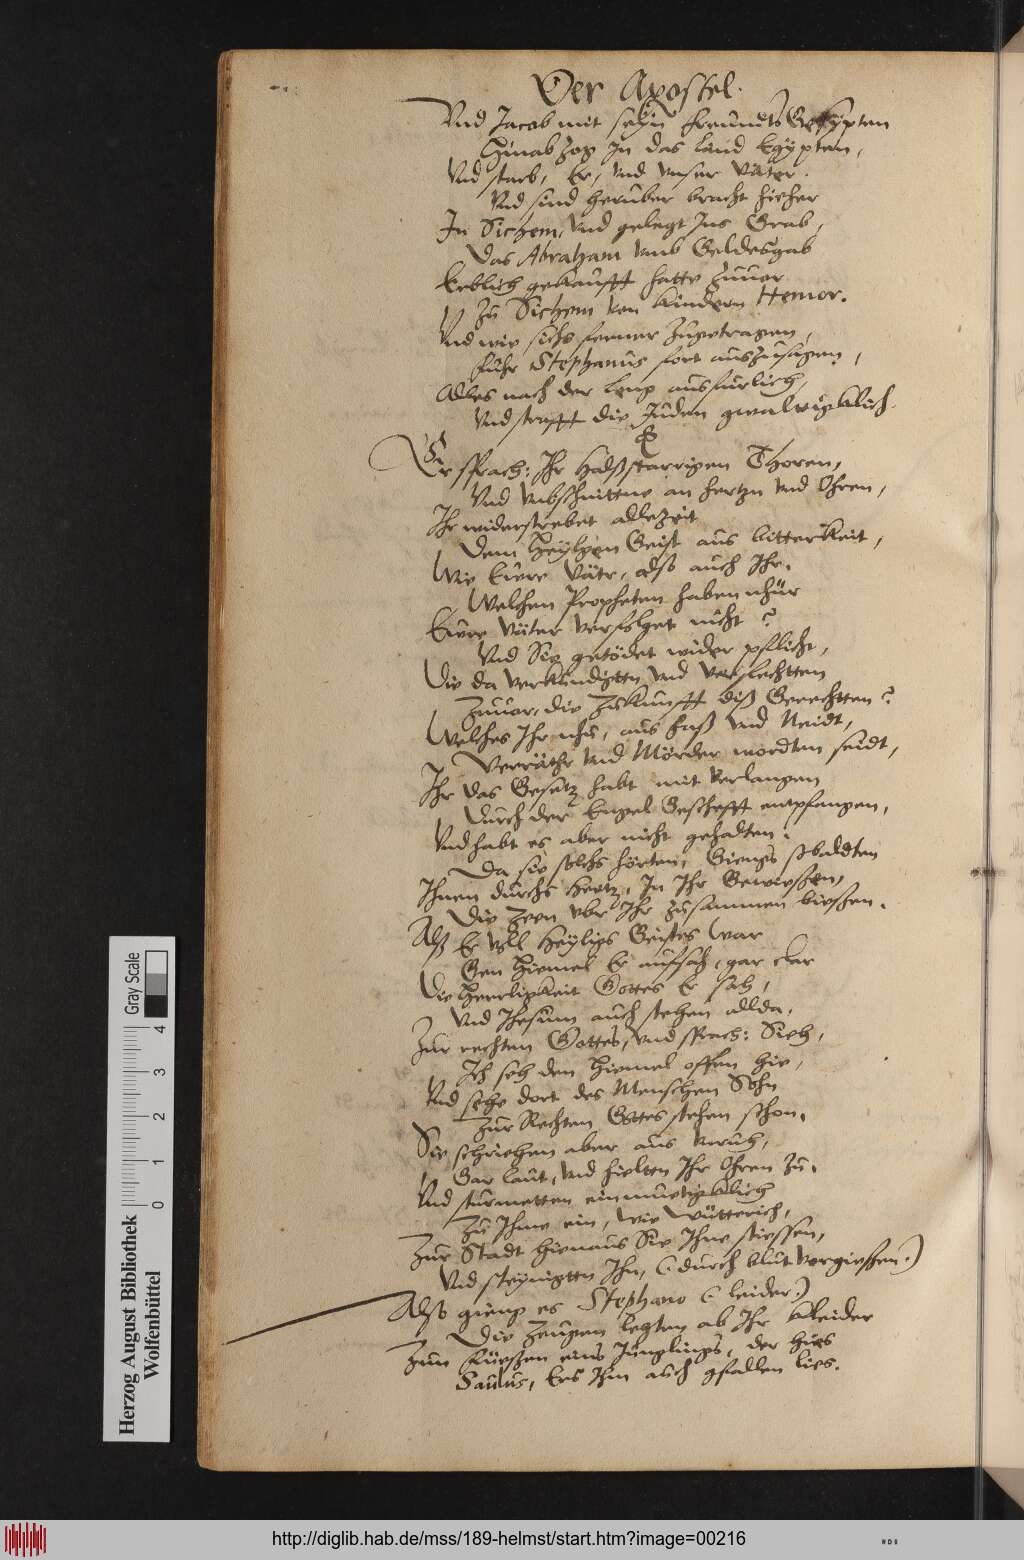 Der Apostel.
Vnd Jacob mit seyn freundts
Hinab zog In das land Egypten,
Vnd starb, Er, vnd vnser Väter.
Vnd sind herüber bracht hieher
In Sichem, Vnd gelegt Ins Grab,
Das Abraham vmb Geldesgab
Erblich gekaufft hatte zuuor
Zu Sichem von kindern Hemor.
Vnd wie sichs ferner zugetragen,
fuhr Stephanus fort auszusagen,
Alles nach der leng ausfürlich,
Vnd strafft die Juden gwaltigklich.
Er sprach: Ihr halßstarrigen Thoren,
Vnd vnbschnittne an hertzn vnd Ohren,
Ihr widerstrebet allezeit
Dem Heylgen Geist aus bitterkeit,
Wie Eüre Vätr, alß auch Ihr.
Welchen Propheten haben nhür
Eüre Väter verfolget nicht?
Vnd Sie getödet wider pflicht,
Die da verkündigten vnd
Zuuor, die Zukunfft diß Gerechtten?
Welches Ihr nhu, aus haß vnd Neidt,
Verräthr vnd Mörder wordten seidt,
Ihr das Gesetz habt mit verlangen
Durch der Engel Gescheft entpfangen,
Vnd habt es aber nicht gehalten.
Da sie solchs hörten, Giengs
Ihnen durchs Hertz, In Ihr Gewießen,
Die Zeen vbr Ihr zusammen bießen.
Alß Er voll Heyligs Geistes war
Gen Himel Er aufsah, gar clar
Die Herrligkeit Gottes Er sah,
Vnd Jhesum auch stehen allda,
Zur rechten Gottes, Vnd sprach: Sieh,
Ich seh den Himel offen hie,
Vnd sehe dort des Menschen Sohn
Zur Rechten Gottes stehen schon.
Sie schriehen aber aus vnruh,
Gar laut, vnd hielten Ihr Ohren zu.
Vnd stürmetten einmuetigklich
Zu Ihme ein, wie Wütterich,
Zur Stadt hienaus Sie Ihne stiessen,
Vnd steynigten Ihn, (:durch blut vergießen:)
Alß gieng es Stephano (: leider:)
Die Zeugen legten ab Ihr kleider
Zun Füeßen eins Jünglings, der hies
Saulus, Ders Ihm auch gfallen lies.
Herzog August Bibliothek
Wolfenbüttel
0 1 2 3 4
Gray Scale
http://diglib.hab.de/mss/189-helmst/start.htm?image=00216